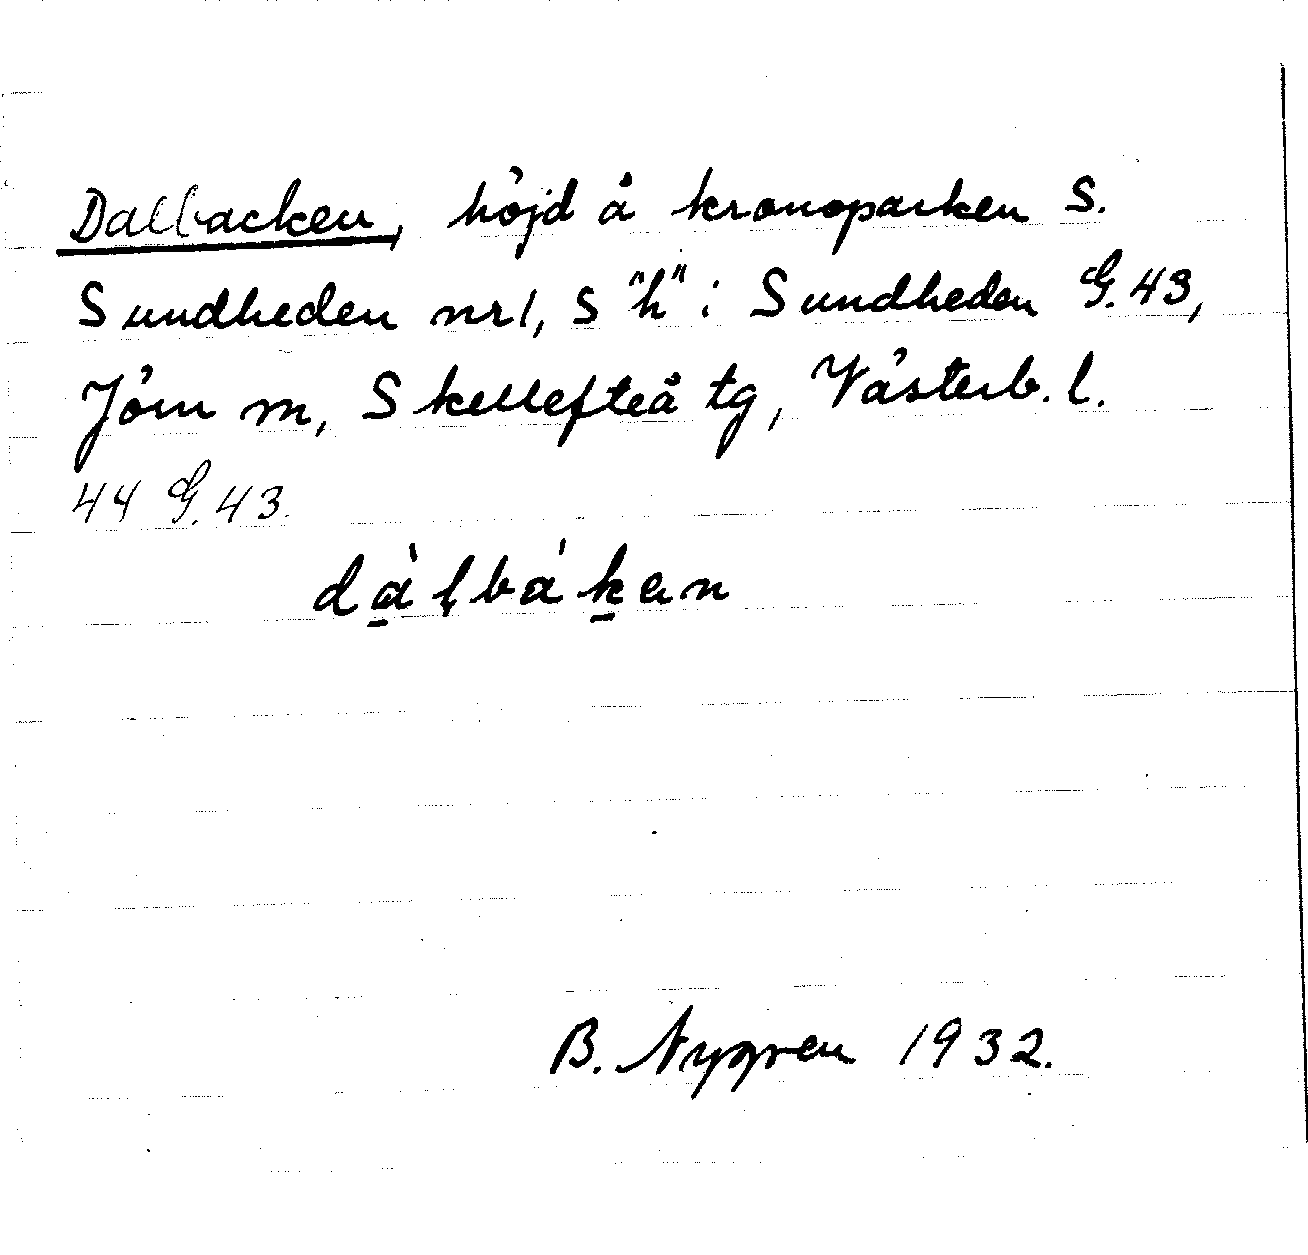 Dalbacken, höjd å kronoparken S.
Sundheden nr 1, S "h" i Sundheden G.43,
Jörn m, Skellefteå tg, Västerb. l.
44 G.43.
dà̱lbáḵen
B. Nygren 1932.